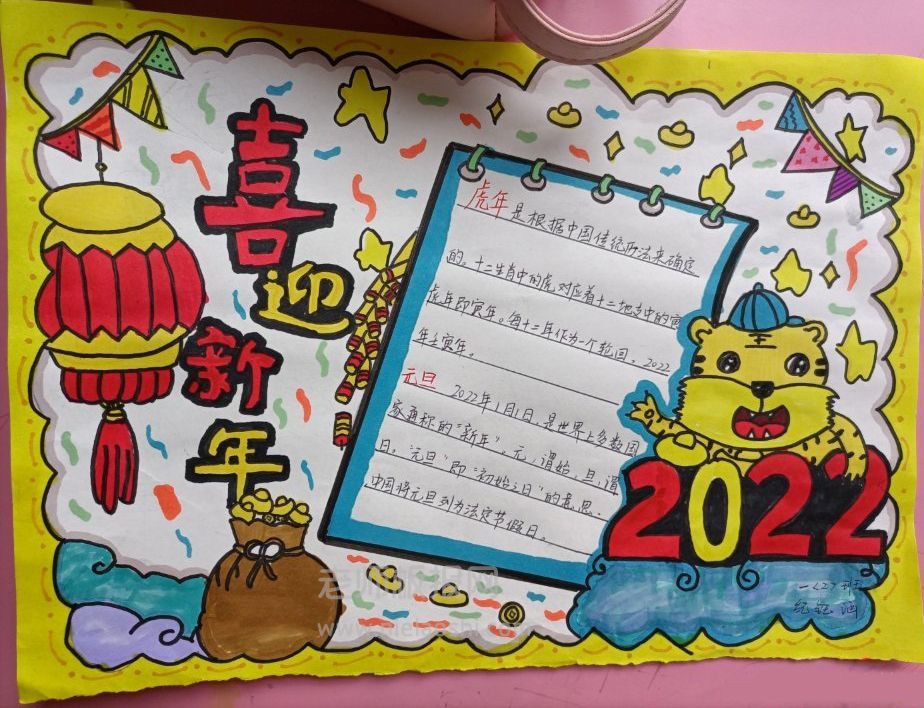 喜
迎
新
年
虎年是根据中国传统历法来确定
的。十二生肖中的虎对应着十二地支中的寅
虎年即寅年。每十二年作为一个轮回。2022
年壬寅年。
元旦 2022年1月1日,是世界上多数国
家通称的"新年"。元,谓始,旦,谓
日。"元旦"即"初始之日"的意思.
中国将元旦列为法定节假日。
2022
一(2)班